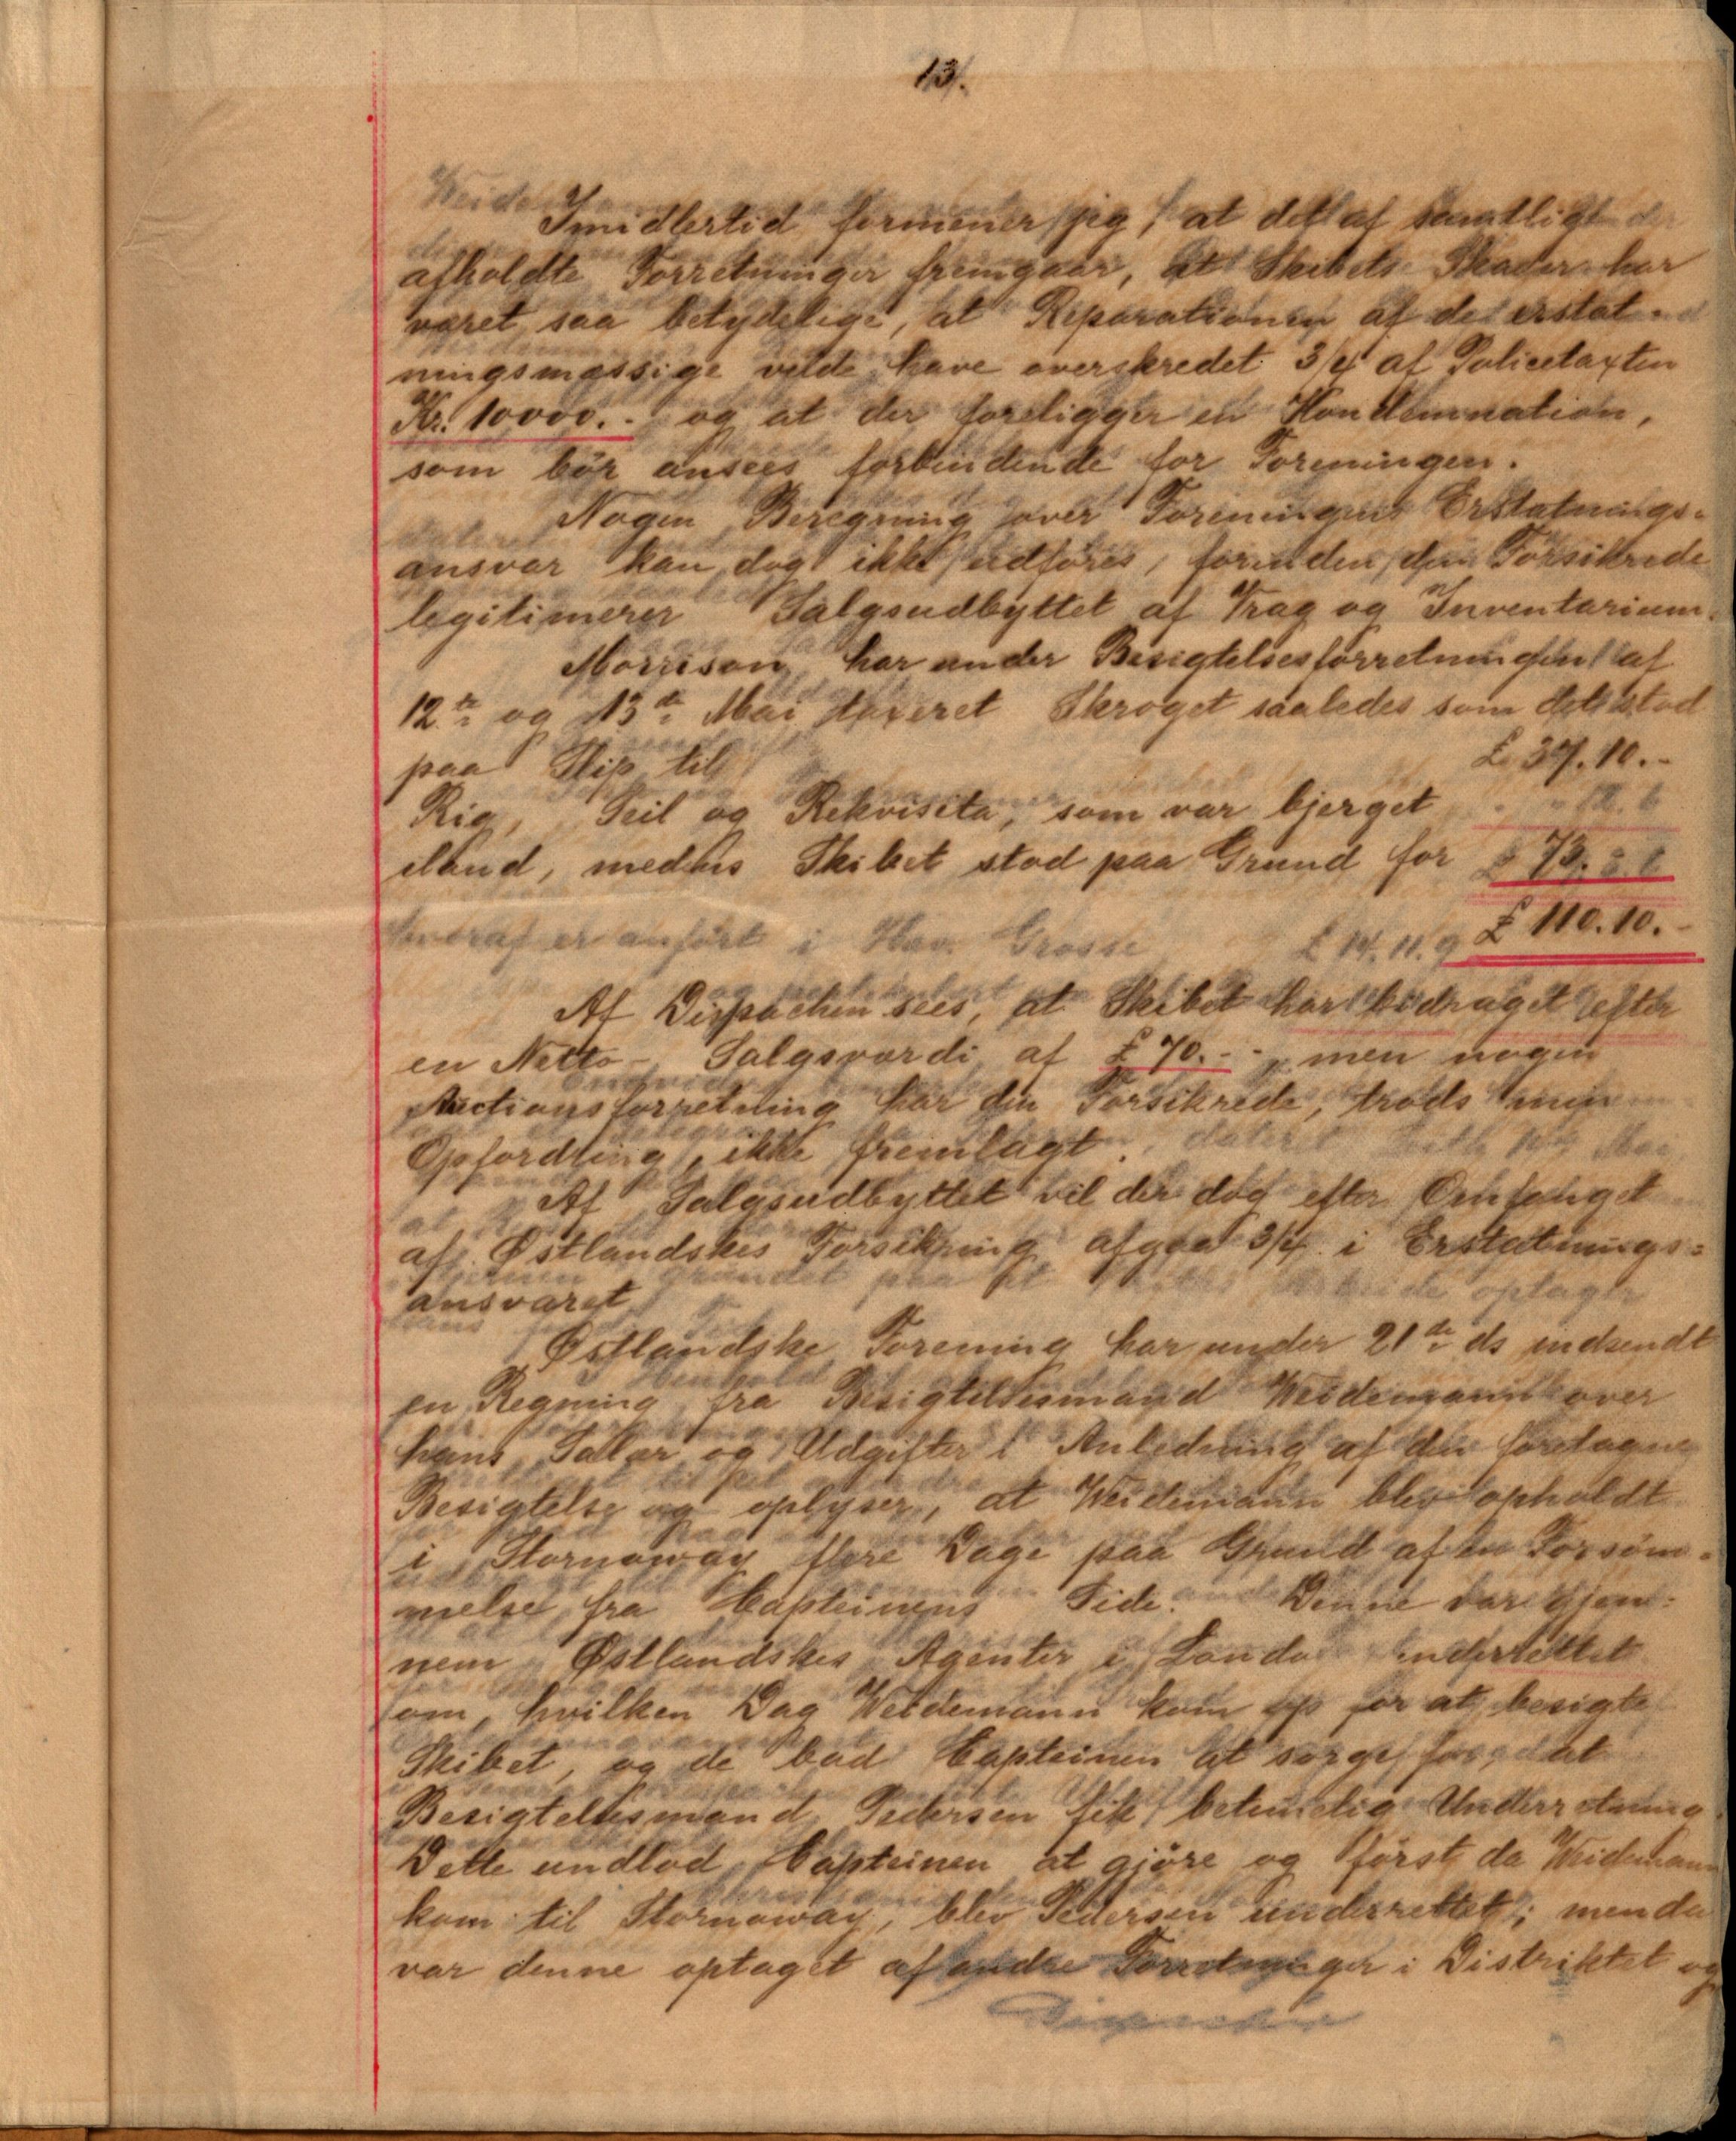 13.
Imidlertid formener jeg, at det af samtlige
afholdte Forretninger fremgaar, at Skibets Skader har
været saa betydelige, at Reparationen af de erstat-
ningsmæssige vilde have overskredet 3/4 af Policetaxten
Kr. 10000.- og at der foreligger en Kondemnation,
som bør ansees forbindende for Foreningen.
Nogen Beregning over Foreningens Erstatnings-
ansvar kan dog ikke udføres, forinden den Forsikrede
legitimerer Salgsudbyttet af Vrag og Inventarium.
Morrison har under Besigtelsesforretningen af
12te og 13de Mai taxeret Skroget saaledes som det stod
paa Slip til £ 37.10.-
Rig, Seil og Rekvisita, som var bjerget
iland, medens Skibet stod paa Grund for £ 73.
£ 110.10.-
Af Dispachen sees, at Skibet har bidraget efter
en Netto-Salgsværdi af £ 70.- - men nogen
Auctionsforretning har den Forsikrede, trods min
Opfordring, ikke fremlagt.
Af Salgsudbyttet vil der dog efter Omfanget
af Østlandskes Forsikring afgaa 3/4 i Erstatnings-
ansvaret
Østlandske Forening har under 21de ds indsendt
en Regning fra Besigtelsesmand Weidemann over
hans Salær og Udgifter i Anledning af den foretagne
Besigtelse og oplyser, at Weidemann blev opholdt
i Stornoway flere Dage paa Grund af en Forsøm-
melse fra Capteinens Side. Denne var gjen-
nem Østlandskes Agenter i London underrettet
om, hvilken Dag Weidemann kom op for at besigte
Skibet, og de bad Capteinen at sørge for, at
Besigtelsesmand Pedersen fik betimelig Underretning.
Dette undlod Capteinen at gjøre og først da Weidemann
kom til Stornoway, blev Pedersen underrettet; men da
var denne optaget af andre Forretninger i Distriktet og